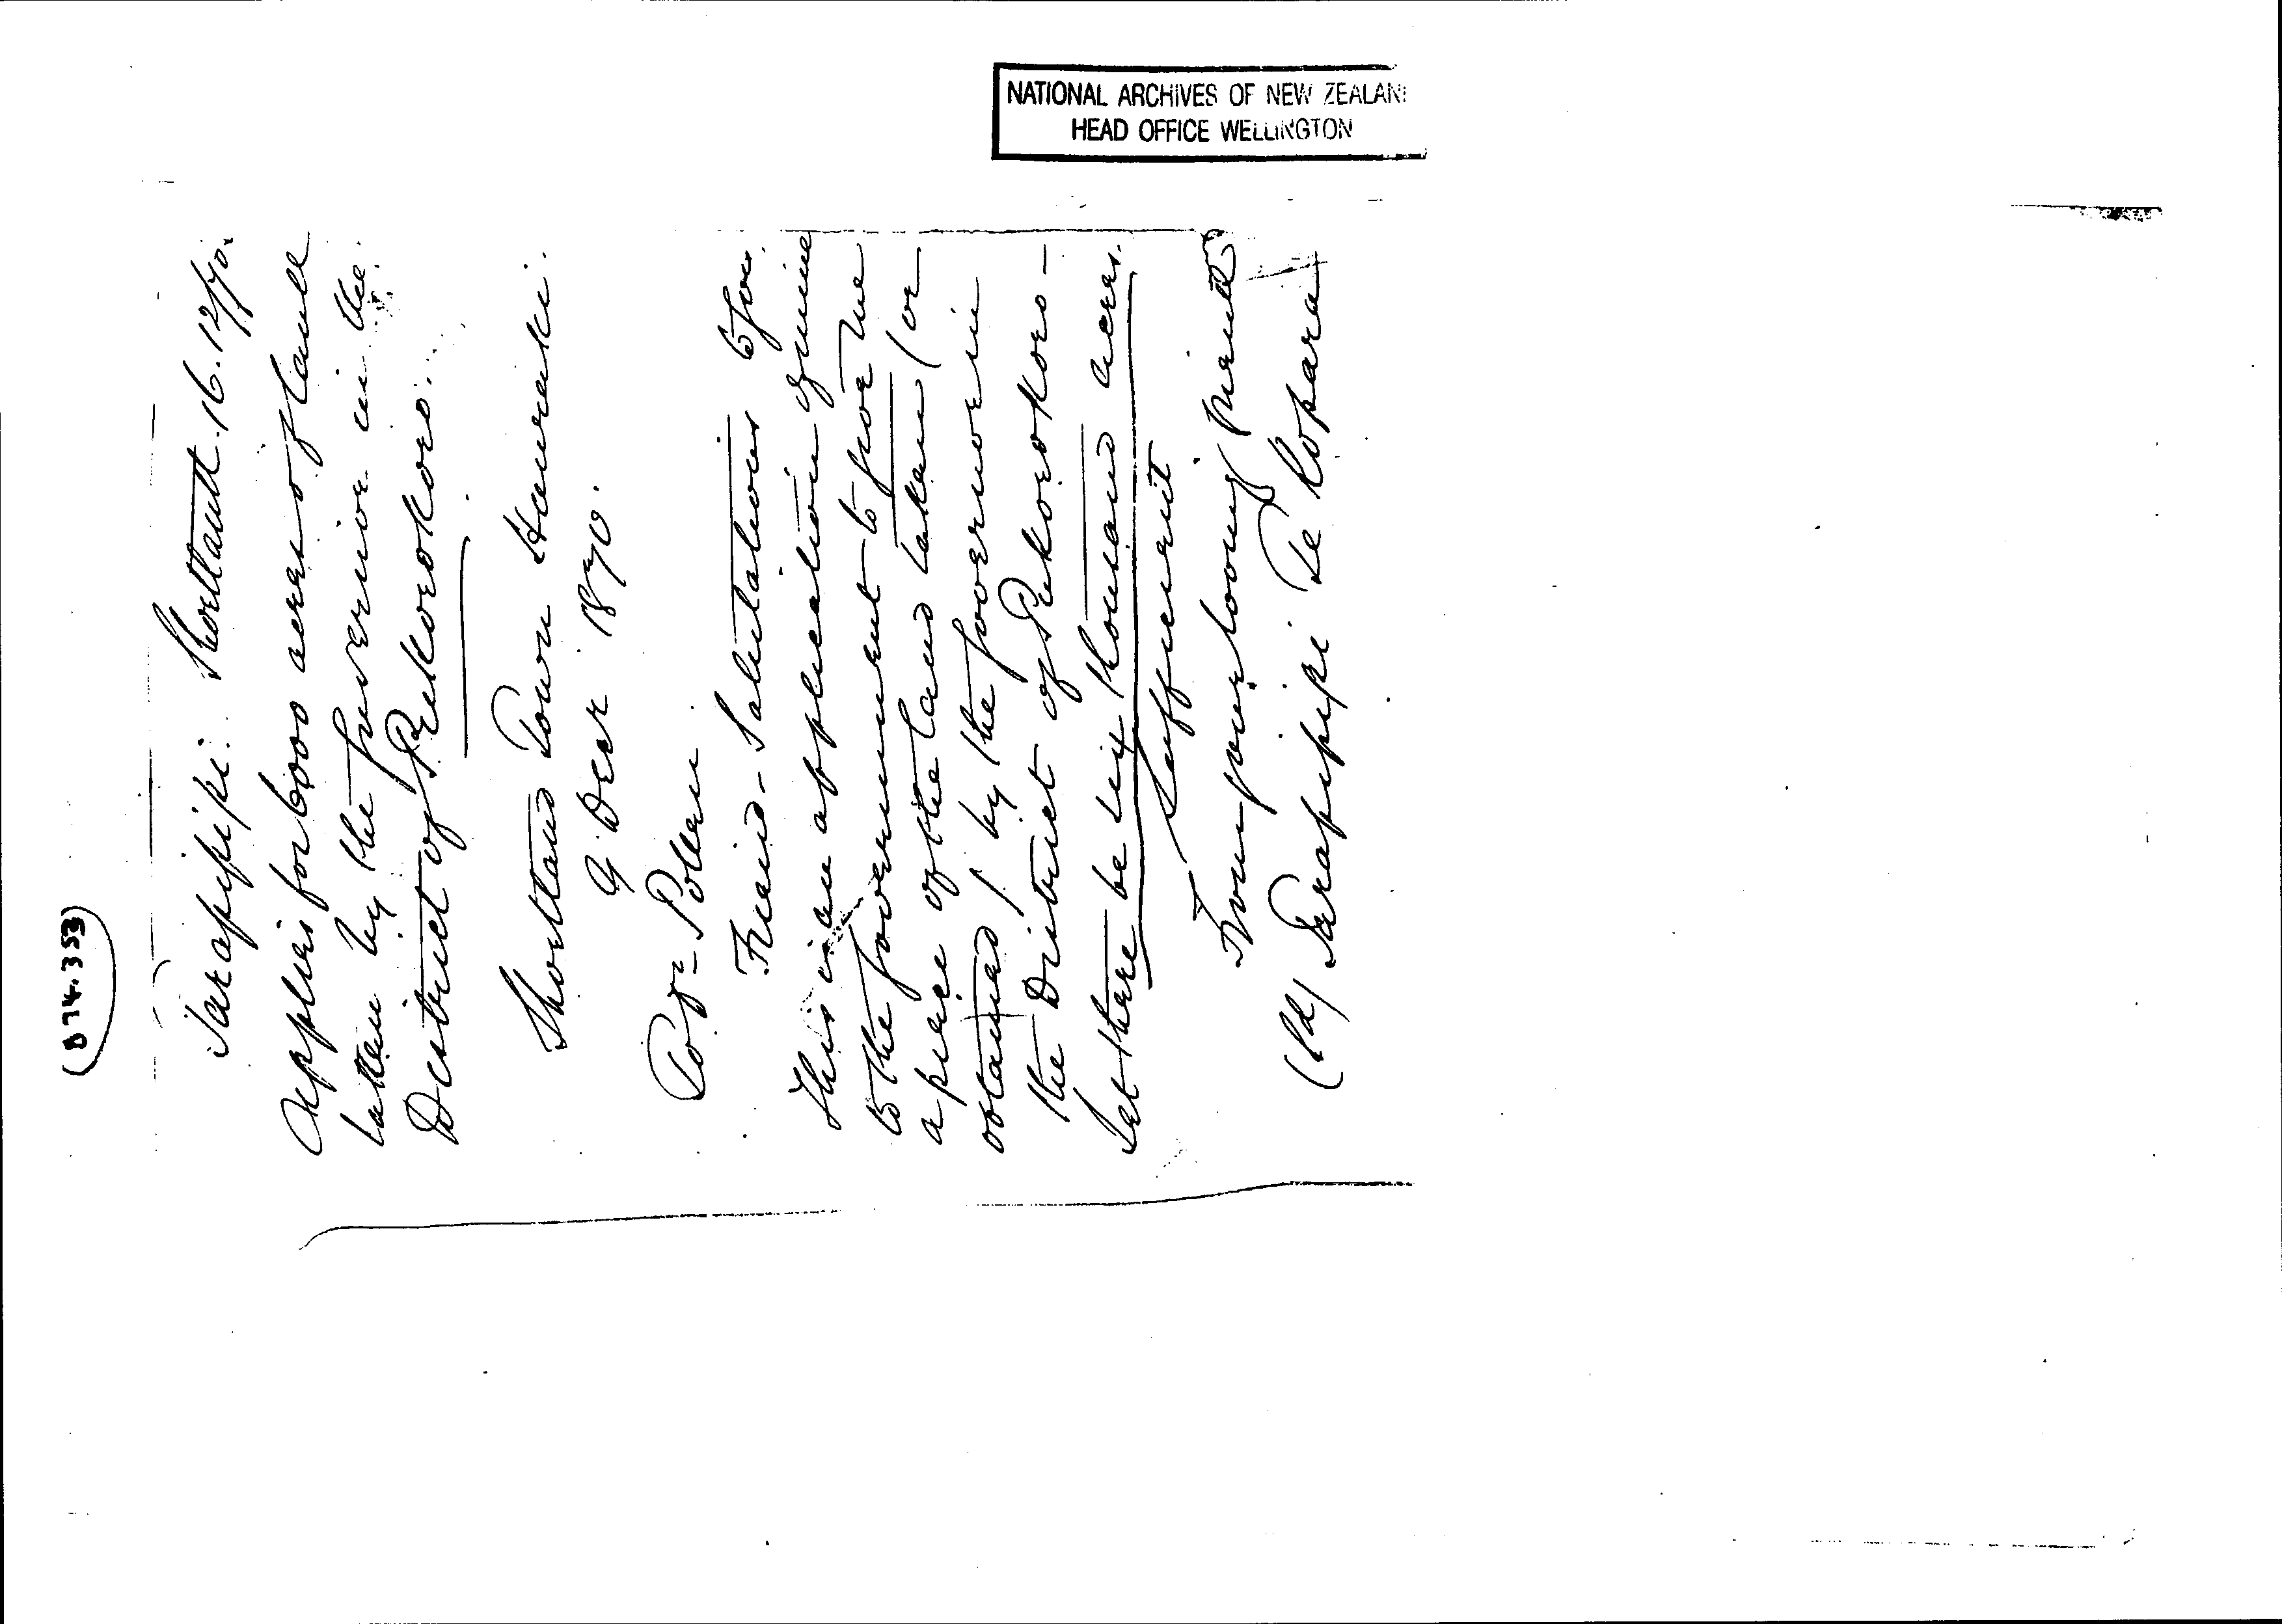 NATIONAL ARCHIVES OF NEW ZEALAND
HEAD OFFICE WELLINGTON
(874.353)
Tarapipipi. Shortland. 16.12/70.
Applies for 6000 acres of land
taken by the Governor in the
District of Pukorokoro.
Shortland Town Hauraki.
9 Decr 1870.
To Dr Pollen.
Friend - Salutations to you.
This is an application of mine
to the Government to give me
a piece of the land taken (or
obtained) by the Government in
the District of Pukorokoro -
Let there be six thousand acres.
sufficient
From your loving friend
(Sd) Tarapipipi Te Kopara